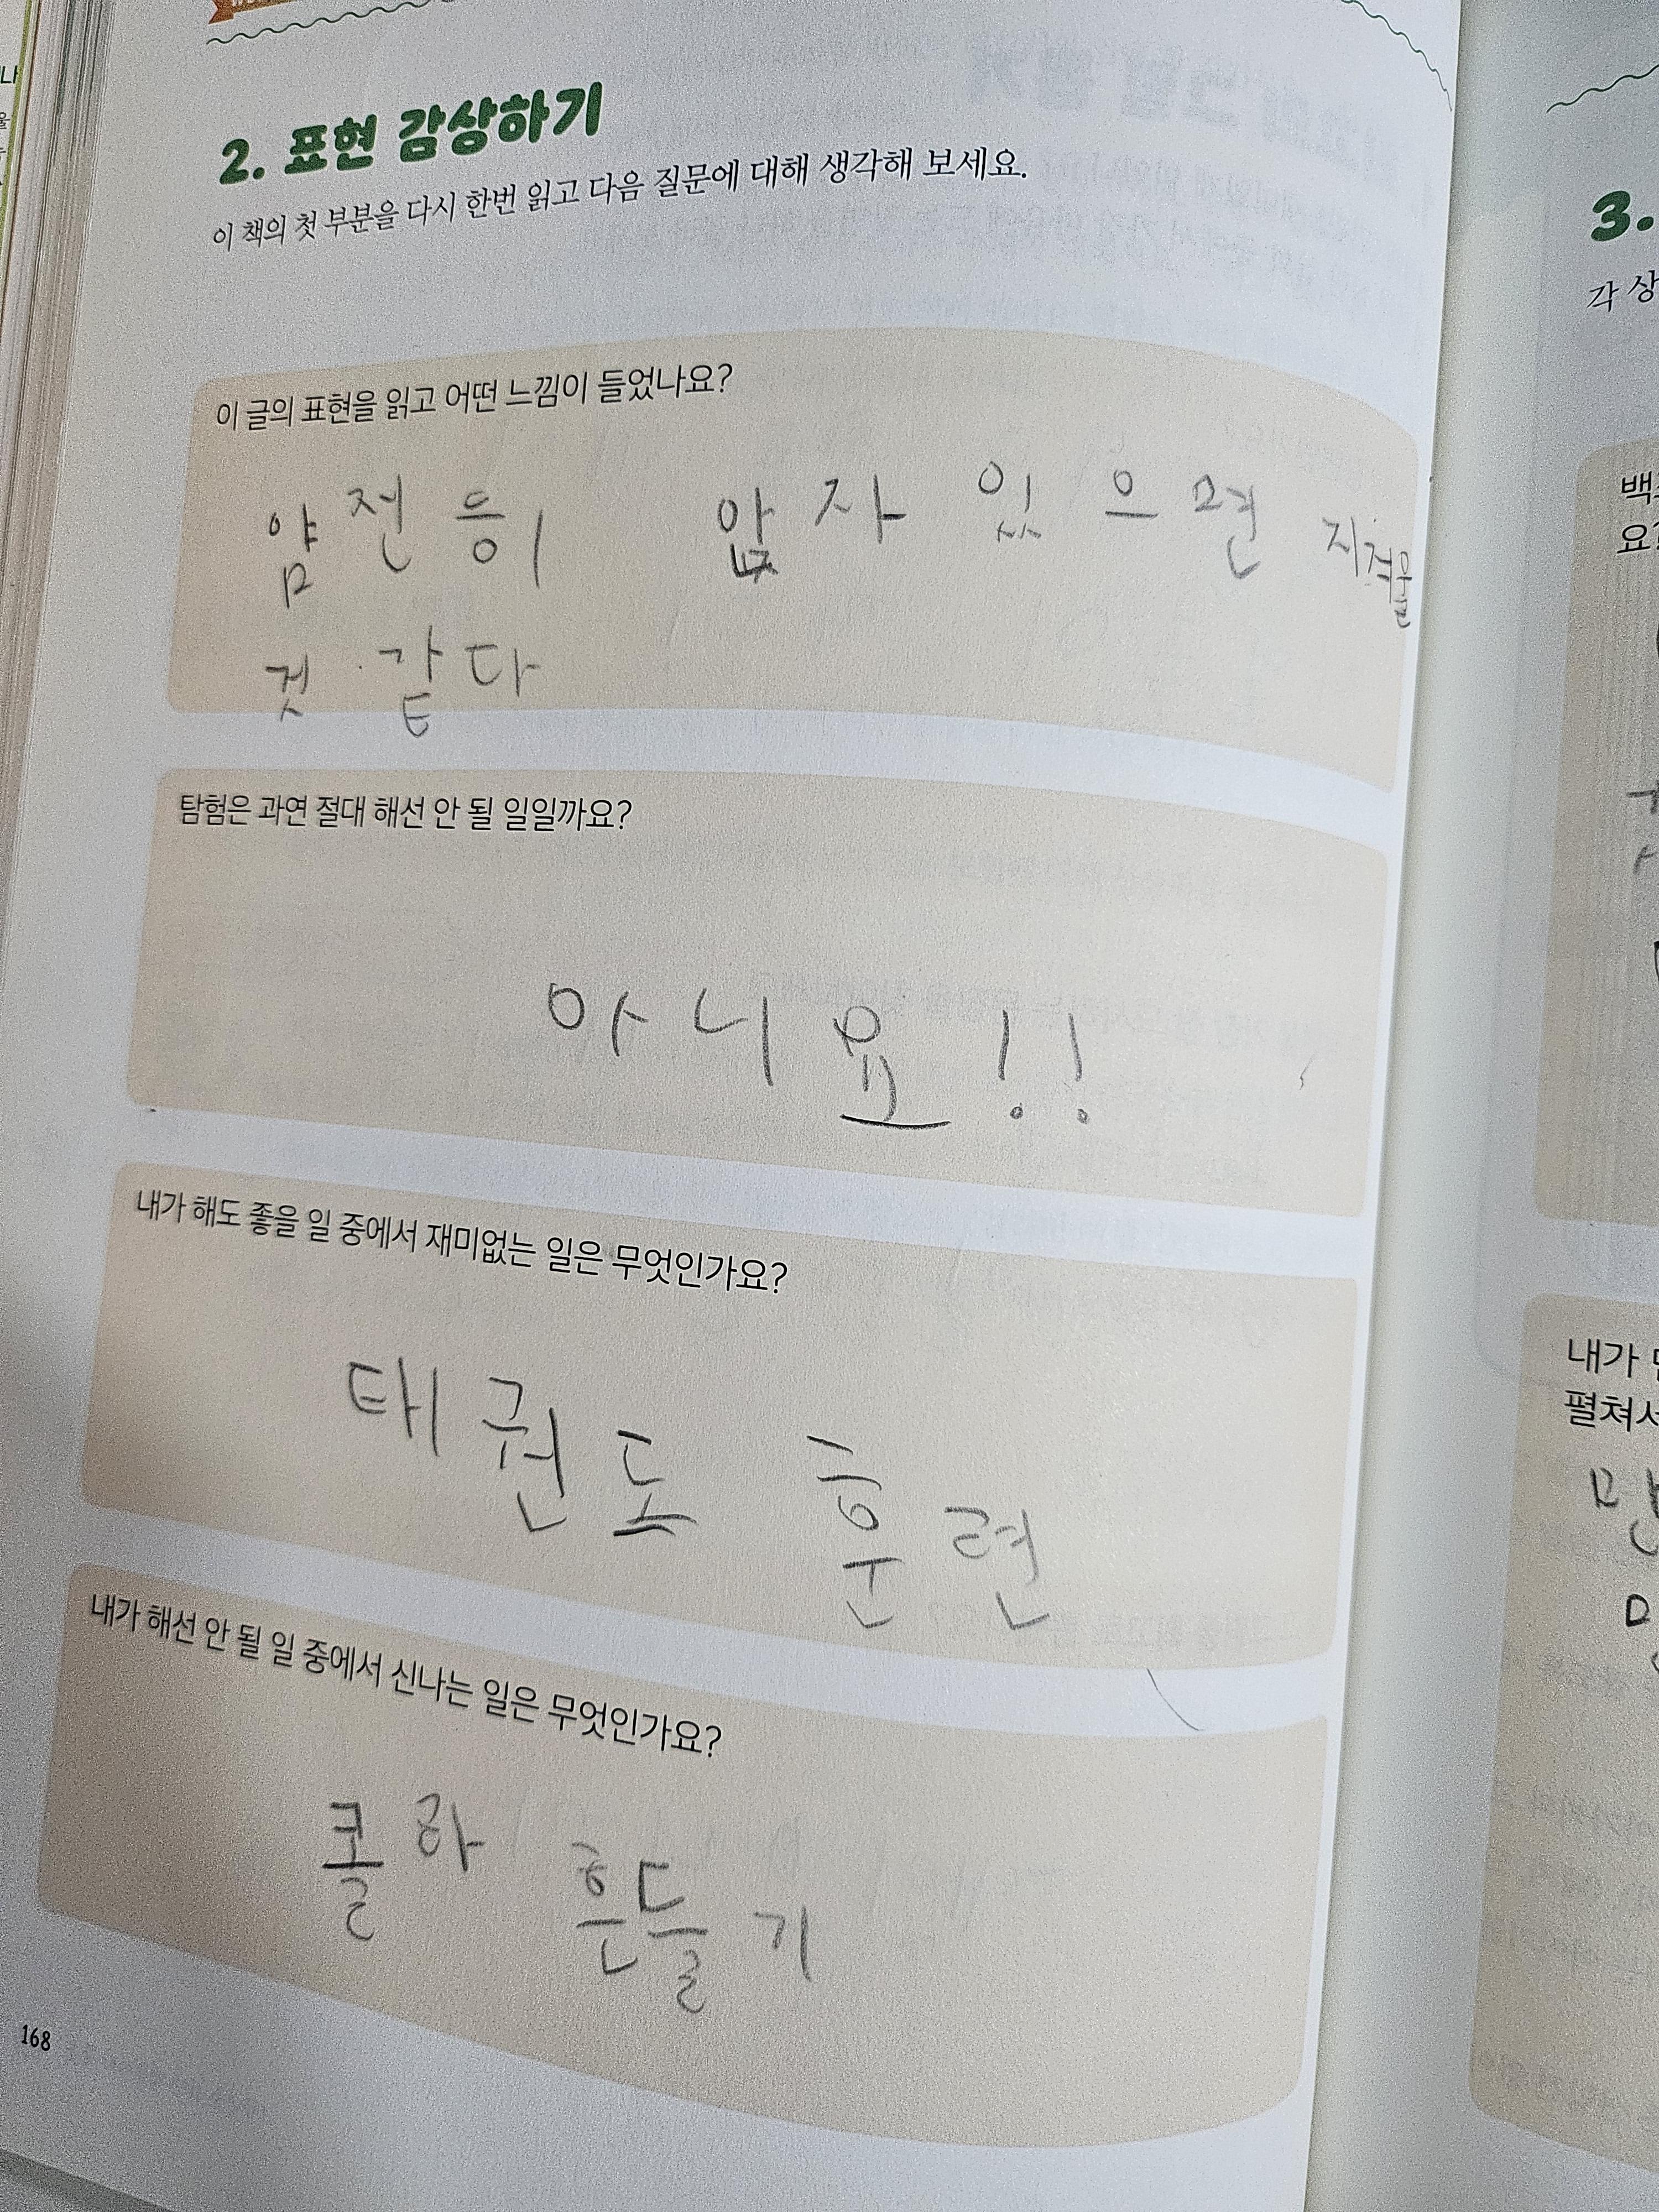 2. 표현 감상하기
이 책의 첫 부분을 다시 한번 읽고 다음 질문에 대해 생각해 보세요.
이 글의 표현을 읽고 어떤 느낌이 들었나요?
얌전등이 앞자 있으면 지겨울
것 같다
탐험은 과연 절대 해선 안 될 일일까요?
아니요!!
내가 해도 좋을 일 중에서 재미없는 일은 무엇인가요?
태권도 훈련
내가 해선 안 될 일 중에서 신나는 일은 무엇인가요?
콜라 흔들기
168
3.
각 상
요?
내가
펼쳐서